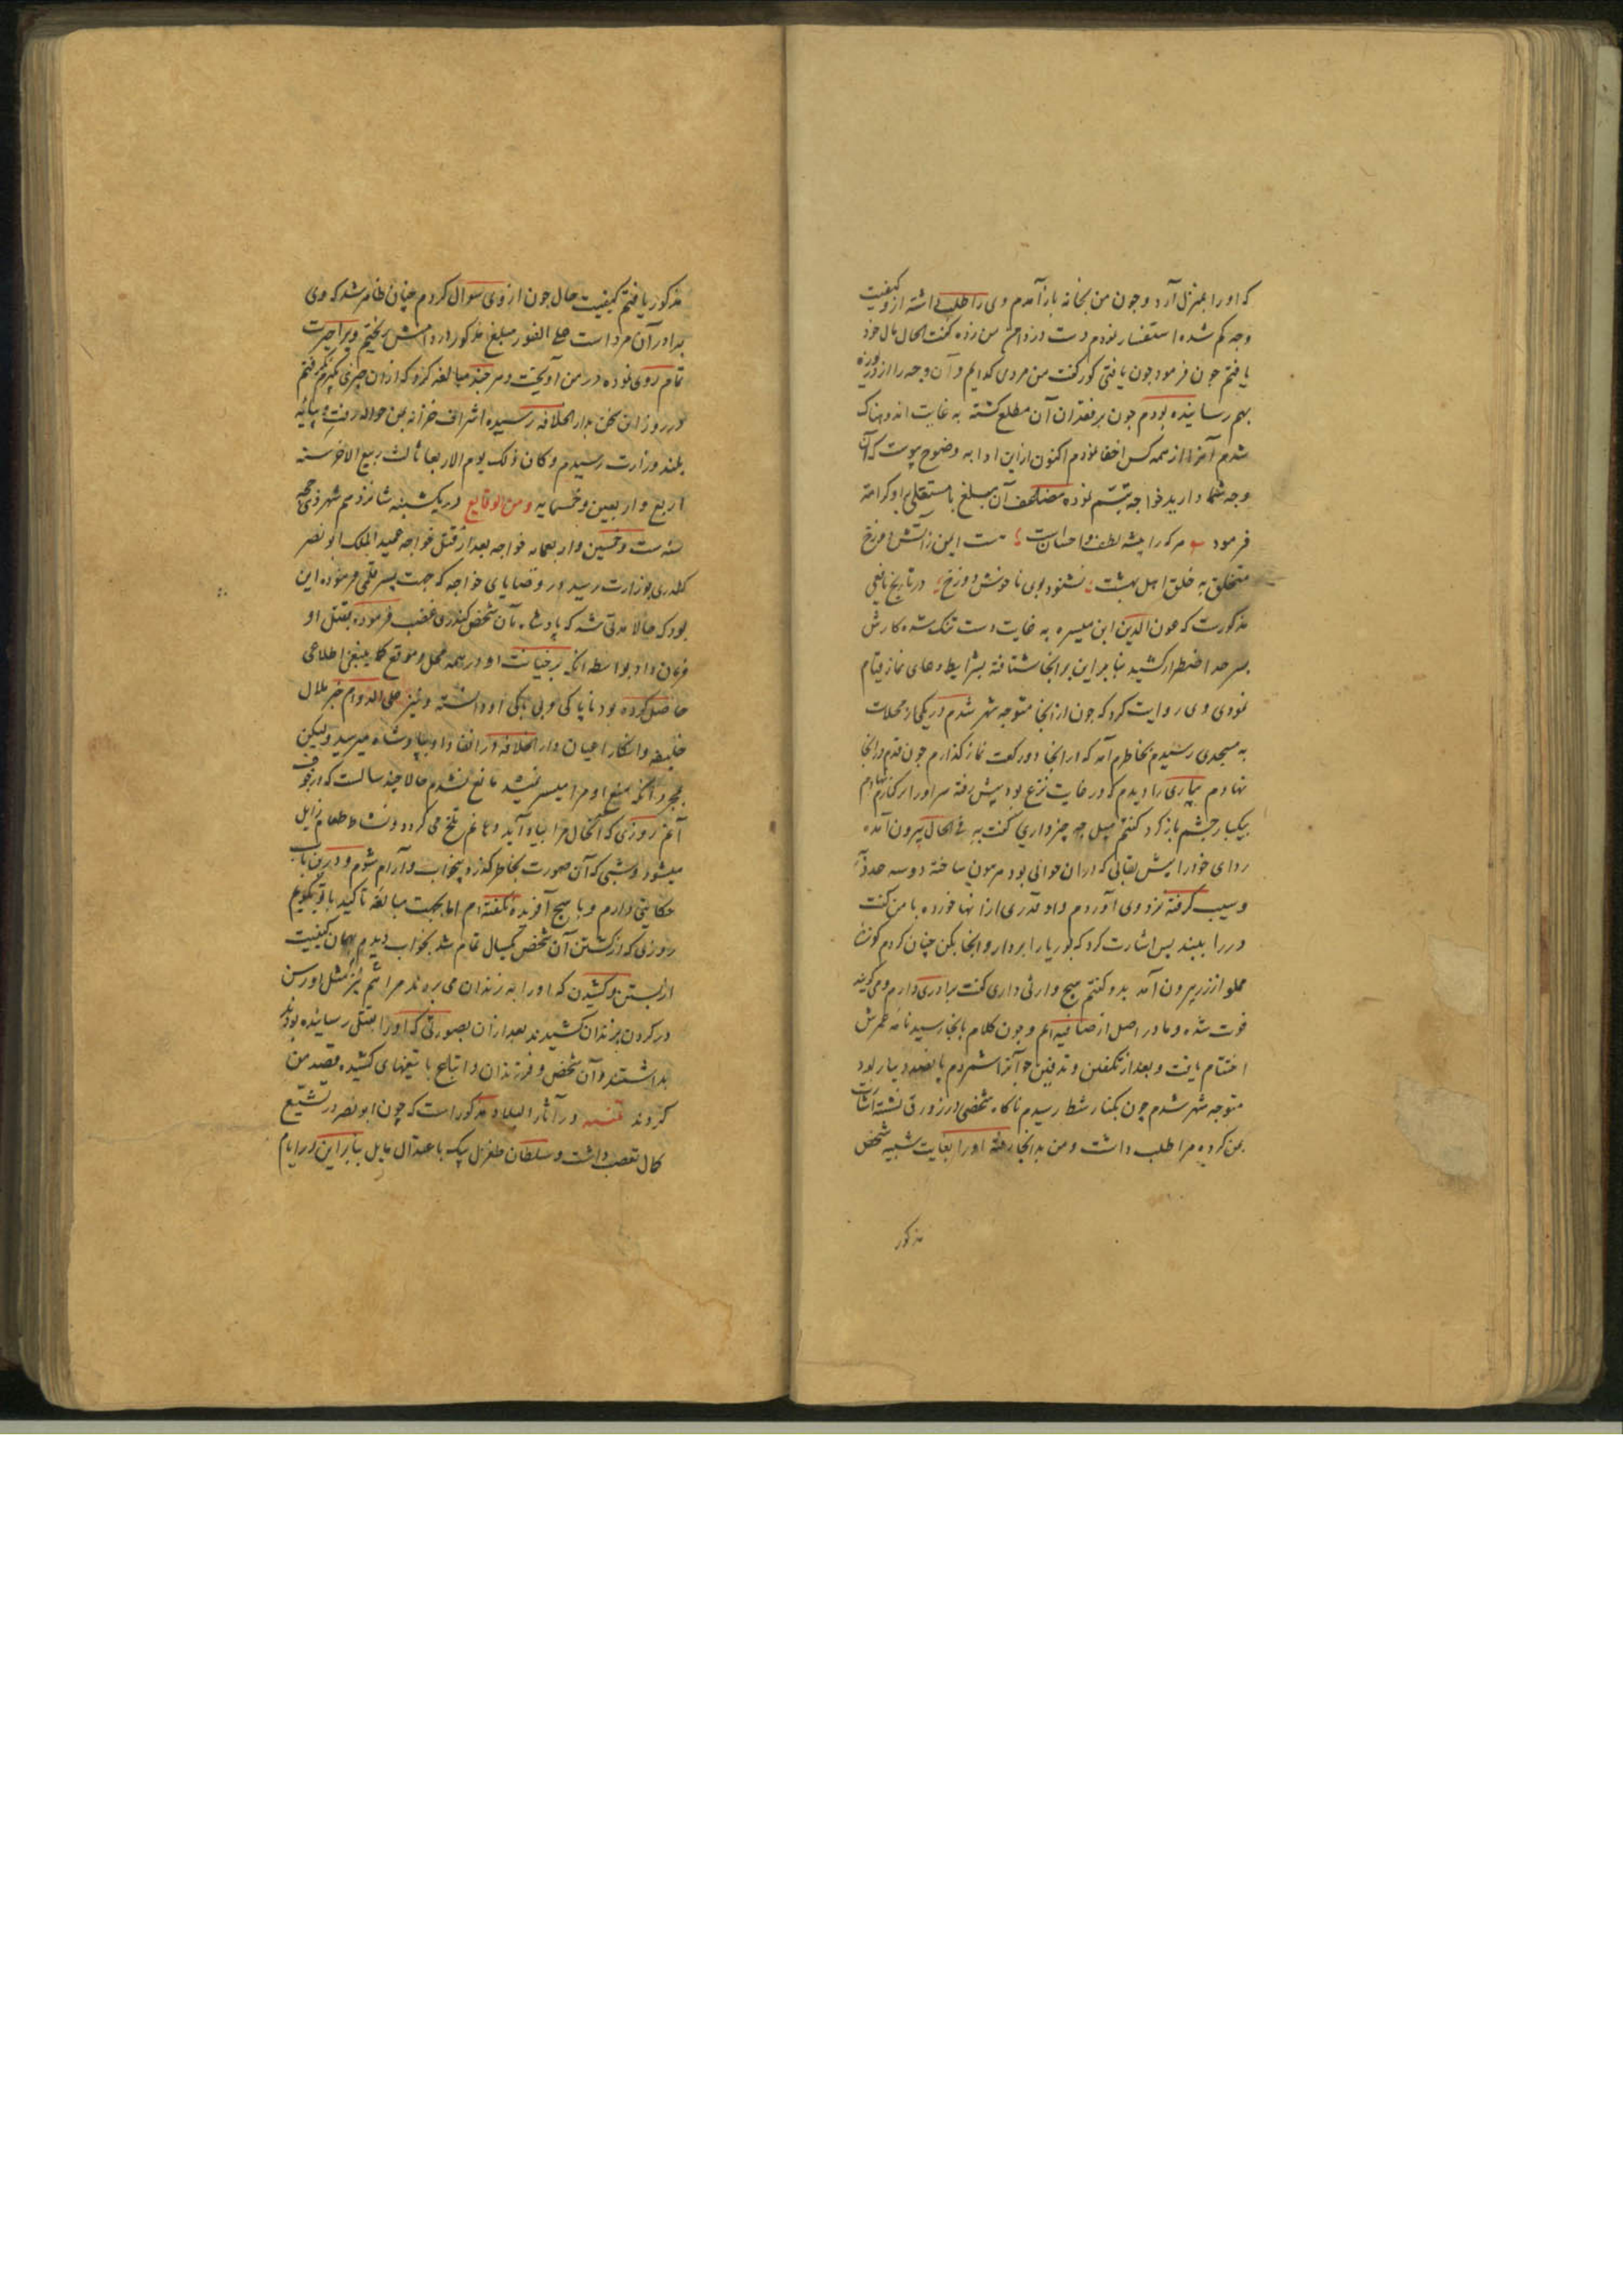 که او را بمنزل آرد و چون من بخانه بازآمدم وی را طلب داشته از و کیفیت
وجه کم شده استفسار نمودم دست در دامن من زده گفت الحال مال خود
یافتم چون فرمود چون یافتی کور گفت من مردی کدایم و آن وجه را از دریوزه
بهم رسانیده بودم چون بر فقدان آن مطلع کشته به غایت اندوهناک
شدم آنرا از همه کس اخفا نمودم اکنون از این ادا به وضوح پیوست که آن
وجه شما دارید خواجه تبسم نموده مضاعف آن مبلغ با او کرامة
فرمود هر که را پیشه لطف و احسان است هست ایمن ز آتش دوزخ
متخلق به خلق اهل بهشت نشنود بوی ناخوش دوزخ در تاریخ یافعی
مذکورست که عون الدین ابن هبیره به غایت دست تنک شده کارش
بسرحد اضطرار کشید بنابراین بر آنجا شتافته بشرایط دعای نماز قیام
نمودی وی روایت کرد که چون از آنجا متوجه شهر شدم در یکی از محلات
به مسجدی رسیدم بخاطرم آمد که در آنجا دو رکعت نماز کذارم چون قدم در آنجا
نهادم بیماری را دیدم که در غایت نزع بود پیش رفته سر او را در کنار نهادم
بیکبار چشم باز کرد کفتم میل چه چیز داری گفت به فی الحال بیرون آمده
ردای خود را پیش بقالی که در آن حوالی بود مرهون ساخته دو سه عدد آن
و سیب گرفته نزد وی آوردم و او قدری از آنها خورده با من گفت
در را ببند پس اشارت کرد که بوریا را بردار و اینجا بکن چنان کردم کوزه
مملو از زر بیرون آمد بدو گفتم هیچ وارثی داری گفت برادری دارم و می گویند
فوت شده و ما در اصل از صافیه ایم و چون کلام بانجا رسید نامه عمرش
اختتام یافت و بعد از تکفین و تدفین چو آنرا شمردم پانصد دینار بود
متوجه شهر شدم چون بکنار شط رسیدم ناکاه شخصی در زورق نشسته اشارت
بمن کرده مرا طلب داشت و من بدانجا رفته او را بغایت شبیه شخص
مذکور
مذکور یافتم کیفیت حال چون از وی سوال کردم چنان ظاهر شد که وی
برادر آن مرد است علی الفور مبلغ مذکور در دامنش ریختم ویرا حیرت
تمام روی نموده در من آویخت و هر چند مبالغه کرد که از آن چیزی بگیرم نکرفتم
در روز از این بدار الخلافه رسیده اشراف خزانه بمن حواله رفت و بپایه
بلند وزارت رسیدم و کان ذلک یوم الاربعا ثالث ربیع الاخر سنه
اربع و اربعین و خمسمایه و من الوقایع در یکشنبه شانزدهم شهر ذی حجه
سنه ست و خمسین و اربعمایه خواجه بعد از قتل خواجه عمید الملک ابو نصر
کندری بوزارت رسید در وصایای خواجه که جهت پسر قلمی فرموده این
بود که حالا مدتی شد که پادشاه بآن شخص کندری غضب فرموده بقتل او
فرمان داد بواسطه انکه بر خیانت او در همه محل و موقع کما ینبغی اطلاعی
حاصل کرده بود ناپاکی و بی باکی او دانسته و نیز علی الدوام خبر ملال
خلیفه و انکار اعیان دار الخلافه در انفاذ او بپادشاه میرسید ولیکن
بمجرد انکه منع او مرا میسر نمیشد مانع نشدم حالا چند سالست که در خوف
آنم روزی که آن حال مرا بیاد آید دماغم تلخ می گردد و نشاط طعام زایل
میشود و شبی که آن صورت بخاطر گذرد بیخواب و آرام شوم و درین باب
حکایتی دارم و با هیچ آفریده نگفته ام اما بجهت مبالغه تاکید با تو بگویم
روزی که از کشتن آن شخص یکسال تمام شد بخواب دیدم بهمان کیفیت
از بستن و کشیدن که او را به زندان می برند مرا هم نیز مثل او رسن
در کردن بزندان کشیدند بعد از آن بصورتی که او را بقتل رسانیده بودند
بداشتند و آن شخص و فرزندان و اتباع با تیغهای کشیده قصد من
کردند تنبیه در آثار البلاد مذکور است که چون ابو نصر در تشیع
کمال تعصب داشت و سلطان طغرل بیکه باعتزال مایل بنابراین در ایام